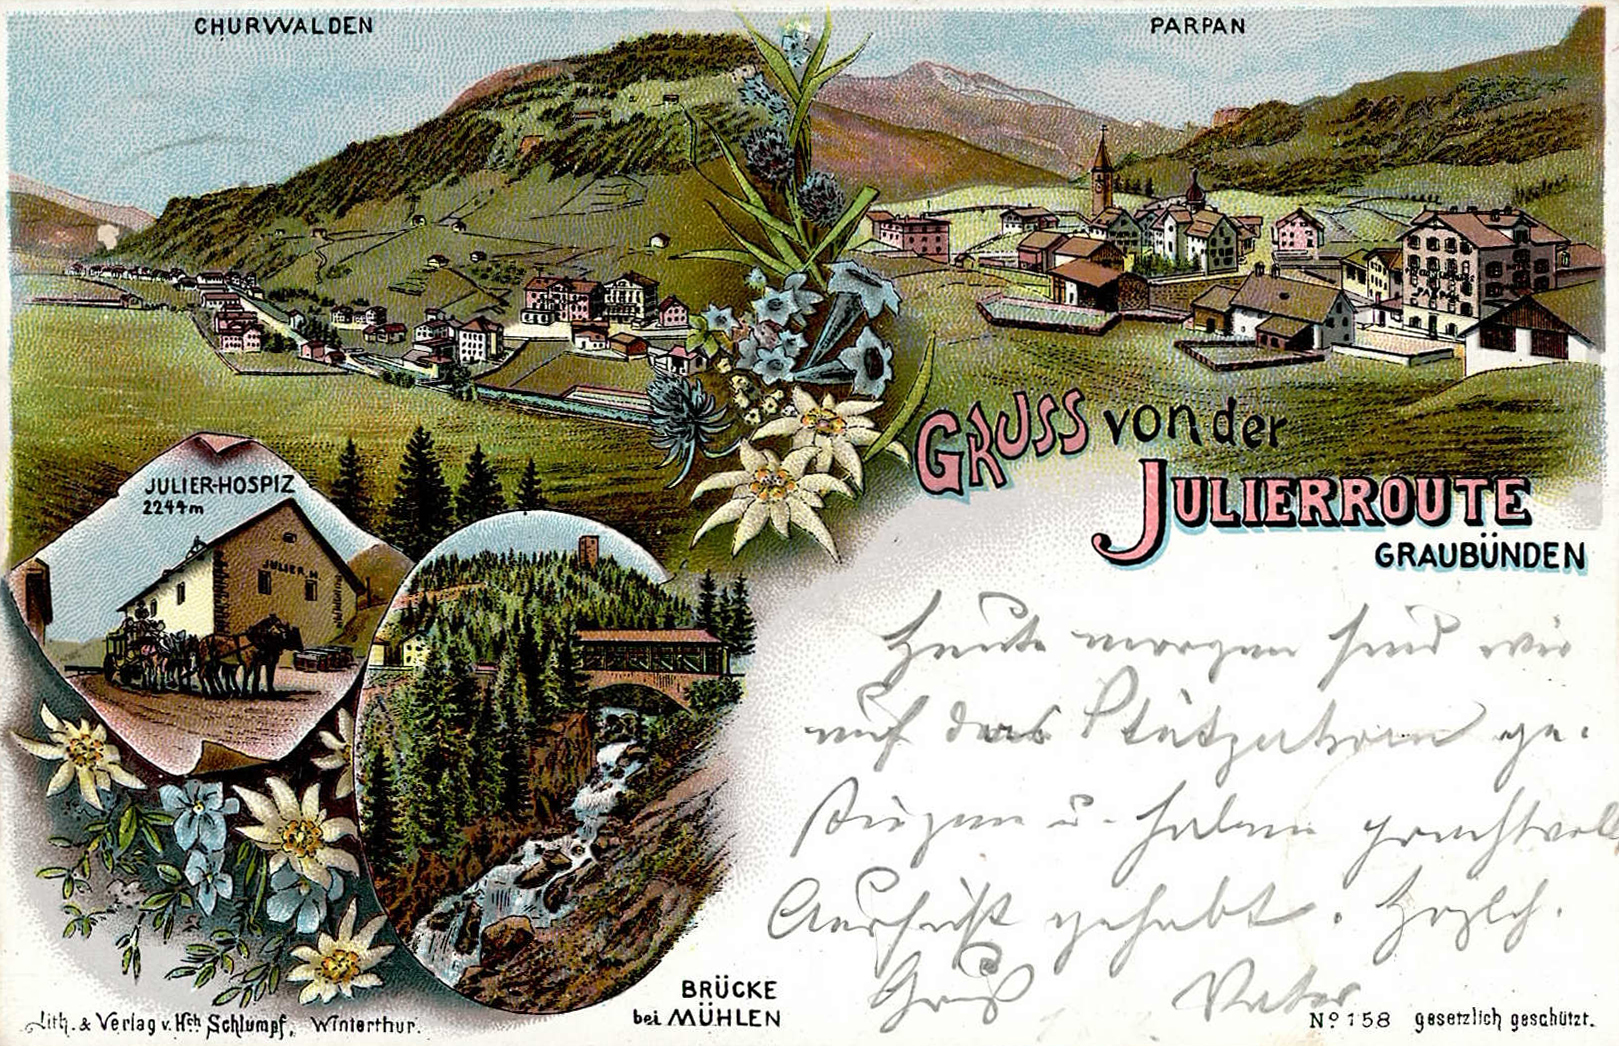 CHURWALDEN
PARPAN
GRUSS von der
JULIERROUTE
GRAUBÜNDEN
JULIER-HOSPIZ
2244m
JULIER. H
Heute morgen sind wir
auf das Stätzerhorn ge-
stiegen u. haben prachtvoll
Aussicht gehabt. Herzlch.
Gruß Vater
BRÜCKE
bei MÜHLEN
Lith. & Verlag v. Hch Schlumpf, Winterthur.
No 158 gesetzlich geschützt.